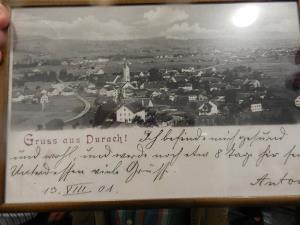 Gruss aus Durach! Ich befinde mich gesund
und wohl, und werde noch etwa 8 Tage hier se
Unterdessen viele Grüsse
13. VIII 01. Anton